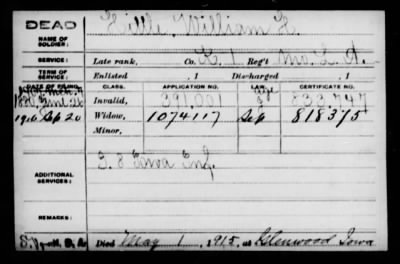 DEAD
NAME OF SOLDIER:
Hille, William H.
SERVICE:
Late rank, Co. K. 1 Reg't Mo. L. A.
TERM OF SERVICE:
Enlisted , 1 Discharged , 1
DATE OF FILING. CLASS. APPLICATION NO. LAW. CERTIFICATE NO.
1880, June 26 Invalid, 391.001 838.747
1916 Sep 20 Widow, 1074117 818375
Minor,
ADDITIONAL SERVICES:
G. 8 Iowa Inf.
REMARKS:
Died May 1, 1915, at Glenwood Iowa